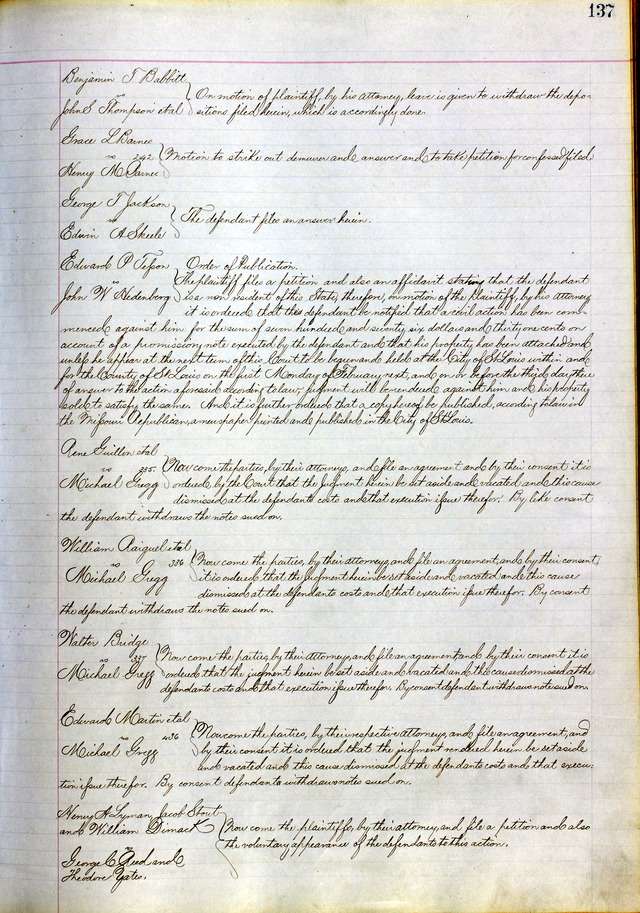 137
Benjamin T Babbitt
vs
John S Thompson et al
On motion of plaintiff, by his attorney, leave is given to withdraw the depo-
sitions filed herein, which is accordingly done.
Grace L Barnes
vs 242
Henry M Barnes
Motion to strike out demurrer and answer and to take petition for confessed filed
George T Jackson
vs
Edwin A Skeele
The defendant files an answer herein.
Edward P Tesson
vs
John W Hedenborg
Order of Publication.
The plaintiff files a petition and also an affidavit stating that the defendant
is a non resident of this State, therefore, on motion of the plaintiff, by his attorney
it is ordered that this defendant be notified that a civil action has been com-
menced against him for the sum of seven hundred and seventy six dollars and thirty one cents on
account of a promissory note executed by the defendant and that his property has been attached and
unless he appear at the next term of this Court to be begun and held at the City of St Louis within and
for the County of St Louis on the first Monday of February next, and on or before the third day there
of answer to the action aforesaid according to law, judgment will be rendered against him and his property
sold to satisfy the same. And it is further ordered that a copy hereof be published, according to law in
the Missouri Republican, a newspaper printed and published in the City of St Louis.
Rene Guillon et al
vs 335
Michael Gregg
Now come the parties, by their attorneys, and file an agreement and by their consent it is
ordered by the Court that the Judgment herein be set aside and vacated and this cause
dismissed at the defendants costs and that execution issue therefor. By like consent
the defendant withdraws the notes sued on.
William Raiguel et al
vs 336
Michael Gregg
Now come the parties, by their attorneys, and file an agreement, and by their consent,
it is ordered that the Judgment herein be set aside and vacated and this cause
dismissed at the defendants costs and that execution issue therefor. By consent
the defendant withdraws the notes sued on.
Walter Bridge
vs 337
Michael Gregg
Now come the parties, by their attorneys, and file an agreement and by their consent it is
ordered that the judgment herein be set aside and vacated and this cause dismissed at the
defendants costs and that execution issue therefor. By consent defendant withdraws note sued on.
Edward Martin et al
vs 436
Michael Gregg
Now come the parties, by their respective attorneys, and file an agreement, and
by their consent it is ordered that the judgment rendered herein be set aside
and vacated and this cause dismissed at the defendants costs and that execu-
tion issue therefor. By consent defendant withdraws notes sued on.
Henry A Lyman, Jacob Stout
and William Dimack
Now come the plaintiffs, by their attorney, and file a petition and also
the voluntary appearance of the defendants to this action.
George C Reed and
Theodore Yates.